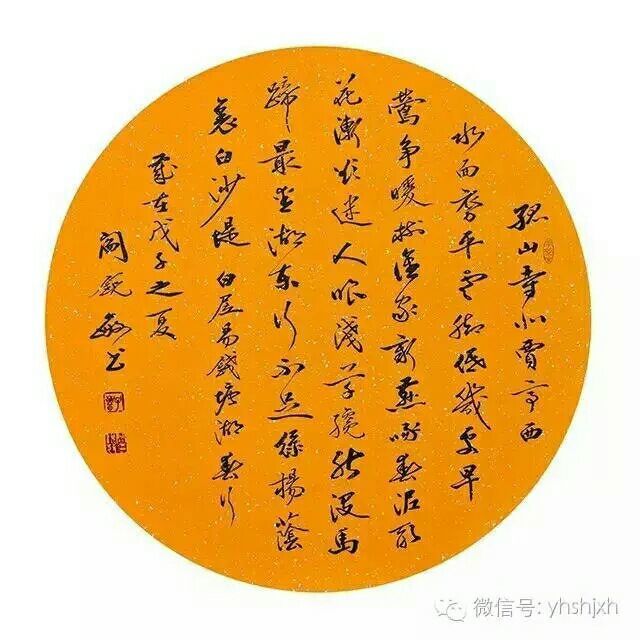 孤山寺北賈亭西
水面初平雲脚低幾處早
鶯争暖樹誰家新燕啄春泥亂
花漸欲迷人眼淺草纔能没馬
蹄最愛湖東行不足綠楊蔭
裏白沙堤 白居易錢塘湖春行
歲在戊子之夏
閻銳敏書
微信号: yhshjxh